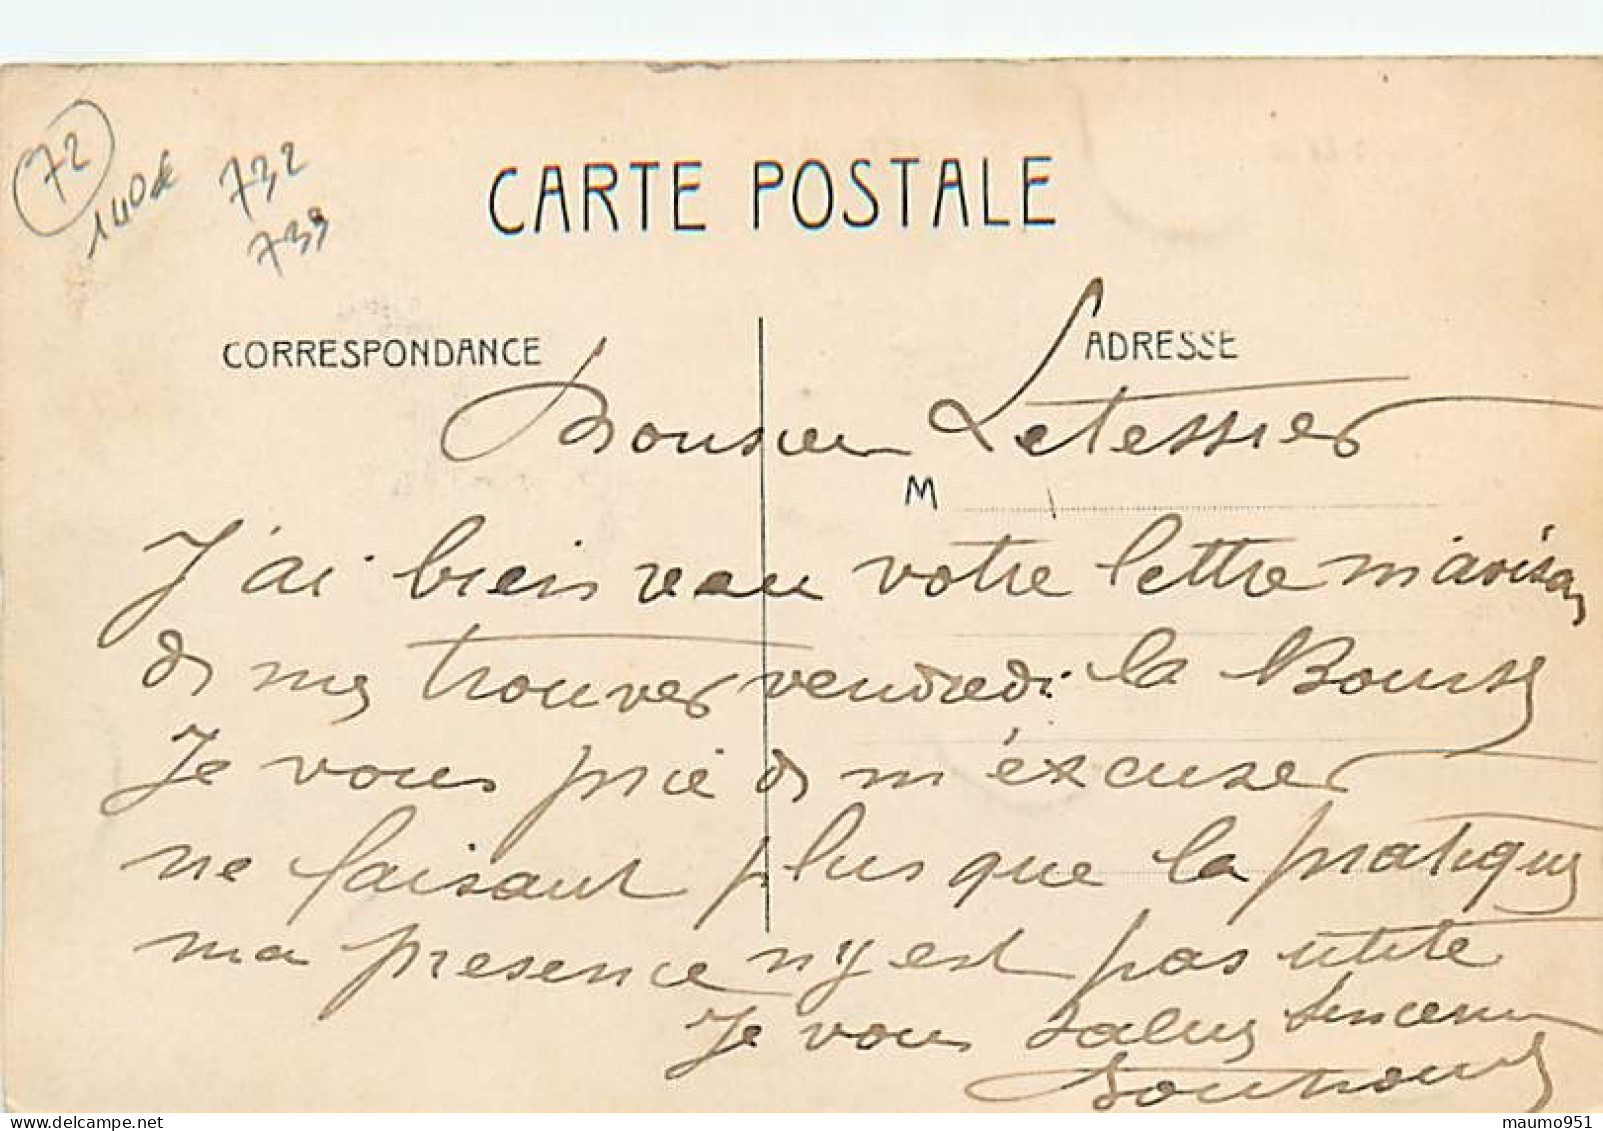 72
140€
732
739
CARTE POSTALE
CORRESPONDANCE
ADRESSE
Monsieur Letessier
M
J'ai bien reçu votre lettre m'avisan
de me trouver vendredi la Bourse
Je vous prie de m'éxcuser
ne faisant plus que la pratique
ma presence n'y est pas utile
Je vous salue
maumo951